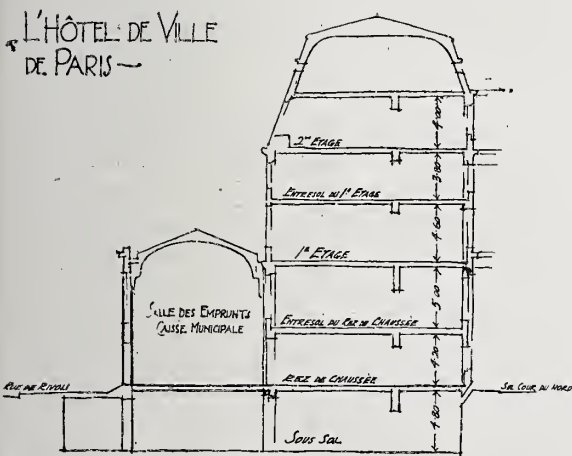 L'HÔTEL DE VILLE
DE PARIS
4.00
2ME ETAGE
3.80
ENTRESOL DU 1R ETAGE
4.60
1R ETAGE
5.00
SALLE DES EMPRUNTS
CAISSE MUNICIPALE
ENTRESOL DU REZ DE CHAUSSÉE
4.20
RUE DE RIVOLI
REZ DE CHAUSSÉE
SOL COUR DU NORD
4.80
SOUS SOL